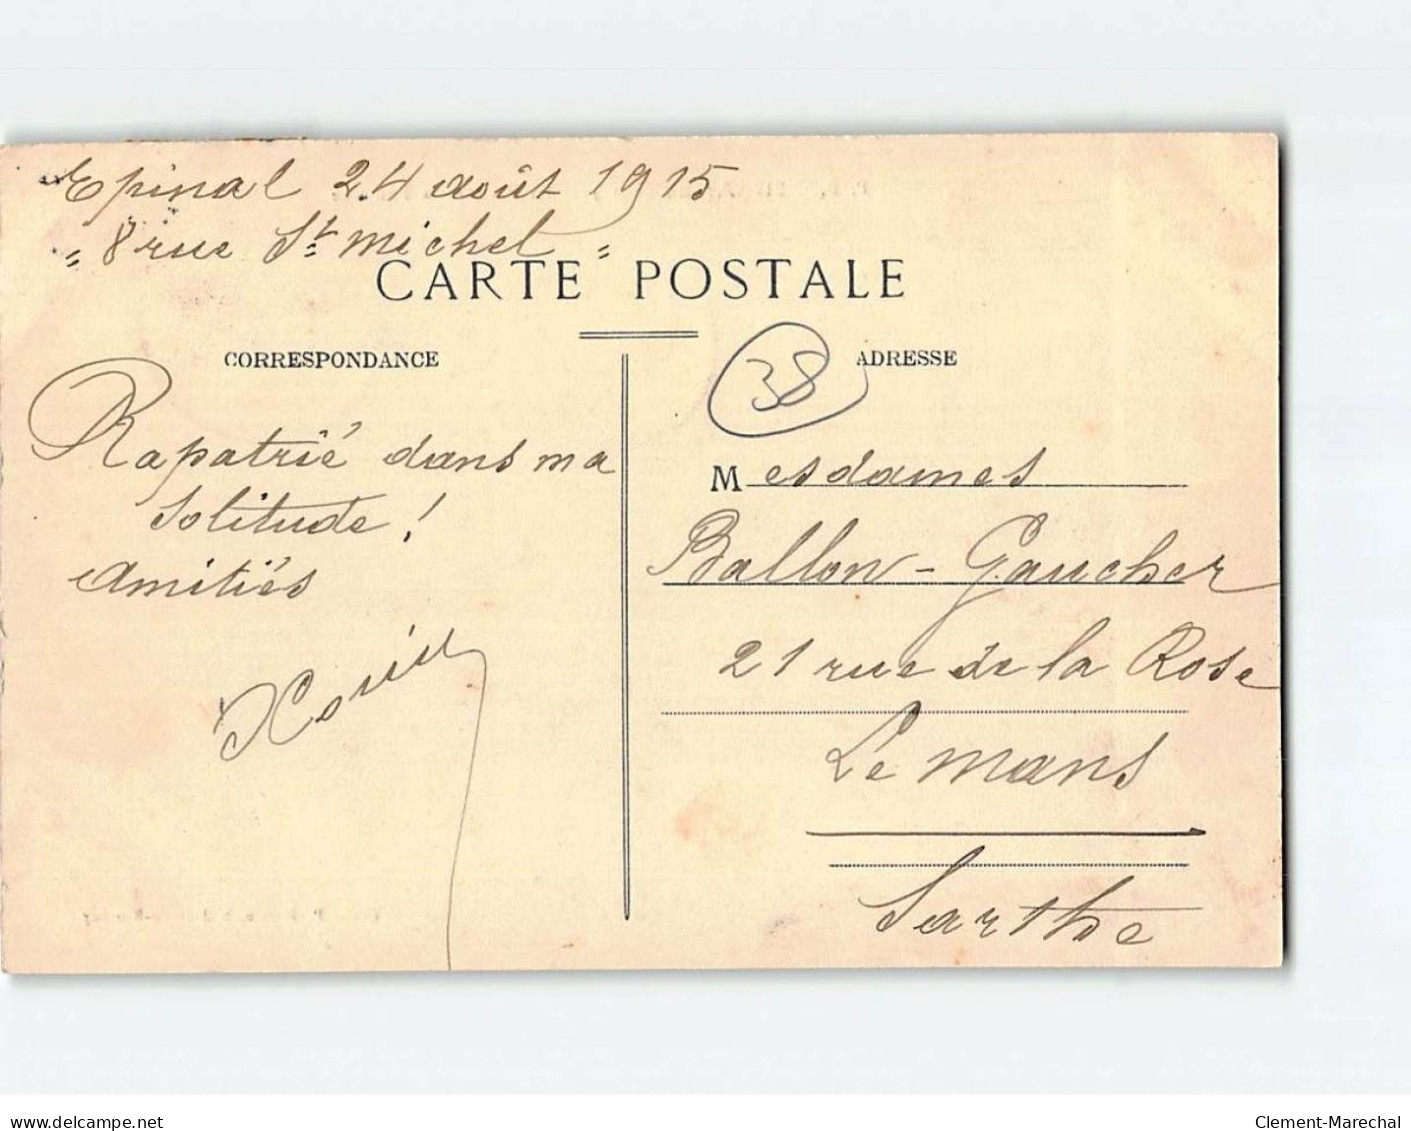 Epinal 24 août 1915
" 8 rue St Michel "
CARTE POSTALE
CORRESPONDANCE
38
ADRESSE
Rapatrié dans ma
solitude !
Amitiés
Mesdames
Ballon - Gaucher
21 rue de la Rose
Le Mans
Sarthe
www.delcampe.net
Clement-Marechal